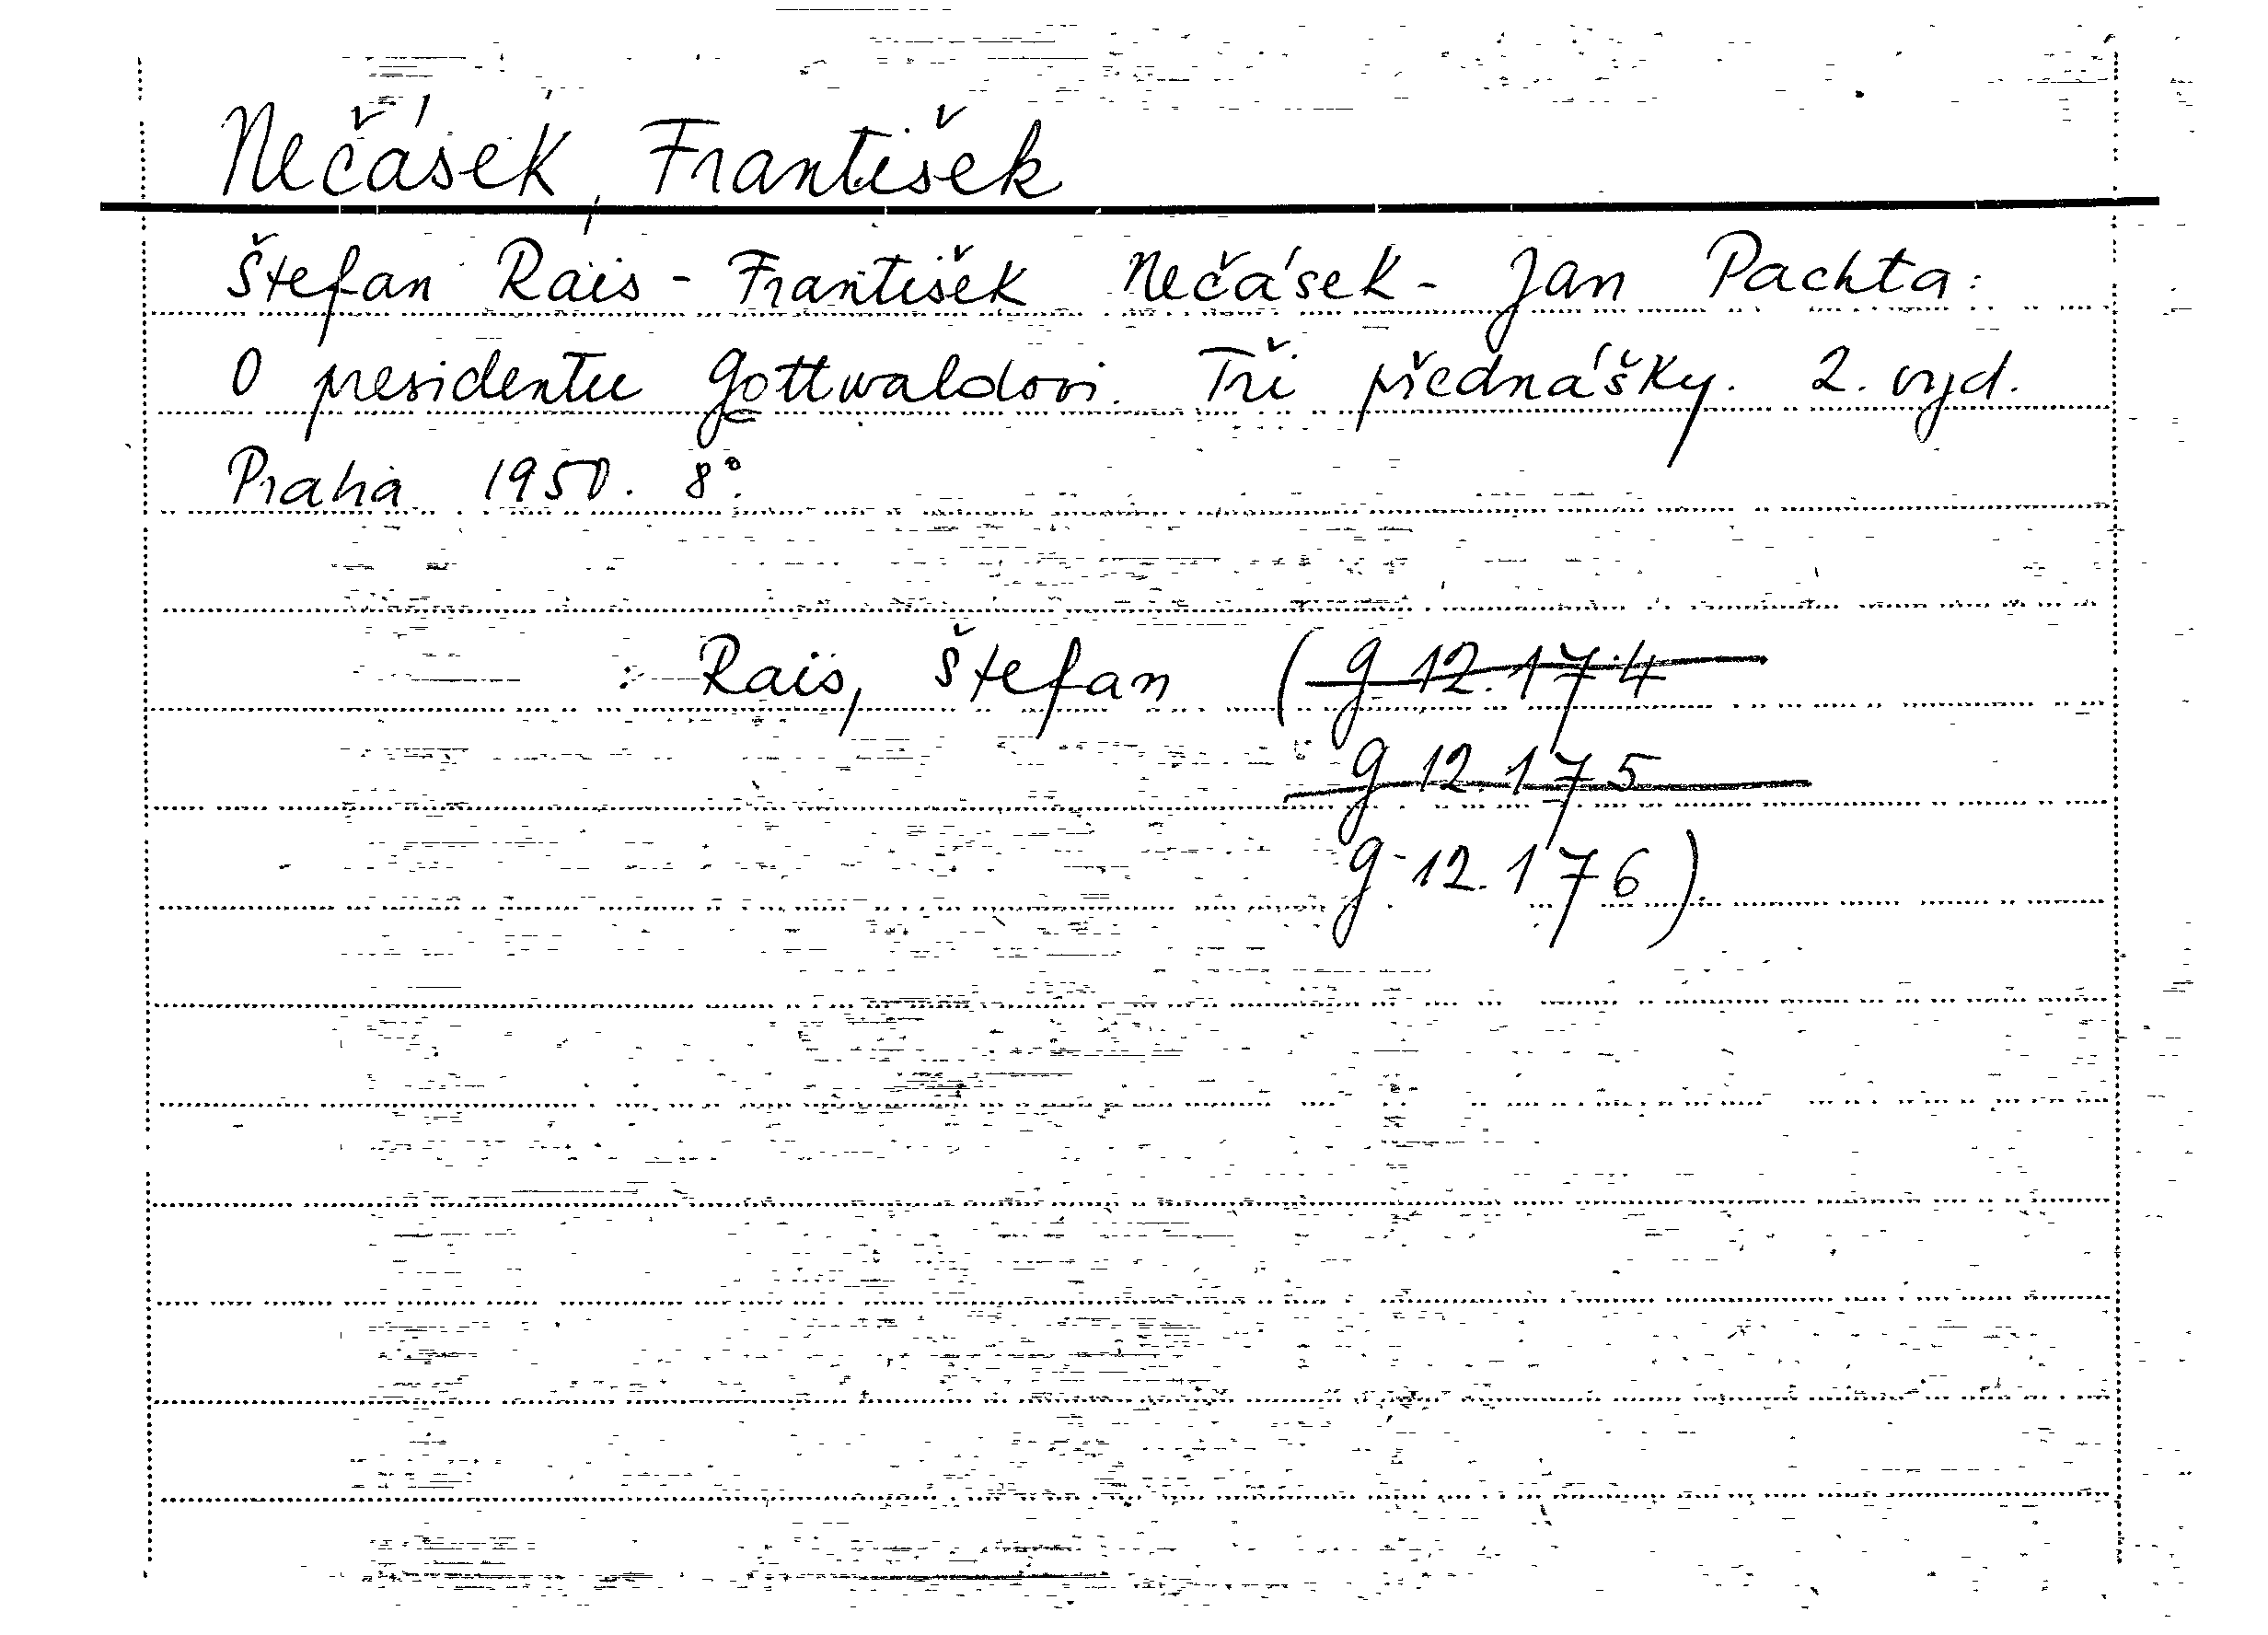 Nečásek, František
Štefan Rais - František Nečásek - Jan Pachta:
O presidentu Gottwaldovi. Tři přednášky. 2. vyd.
Praha 1950. 8°.
: Rais, Štefan (g 12.174
g 12.175
g 12.176)